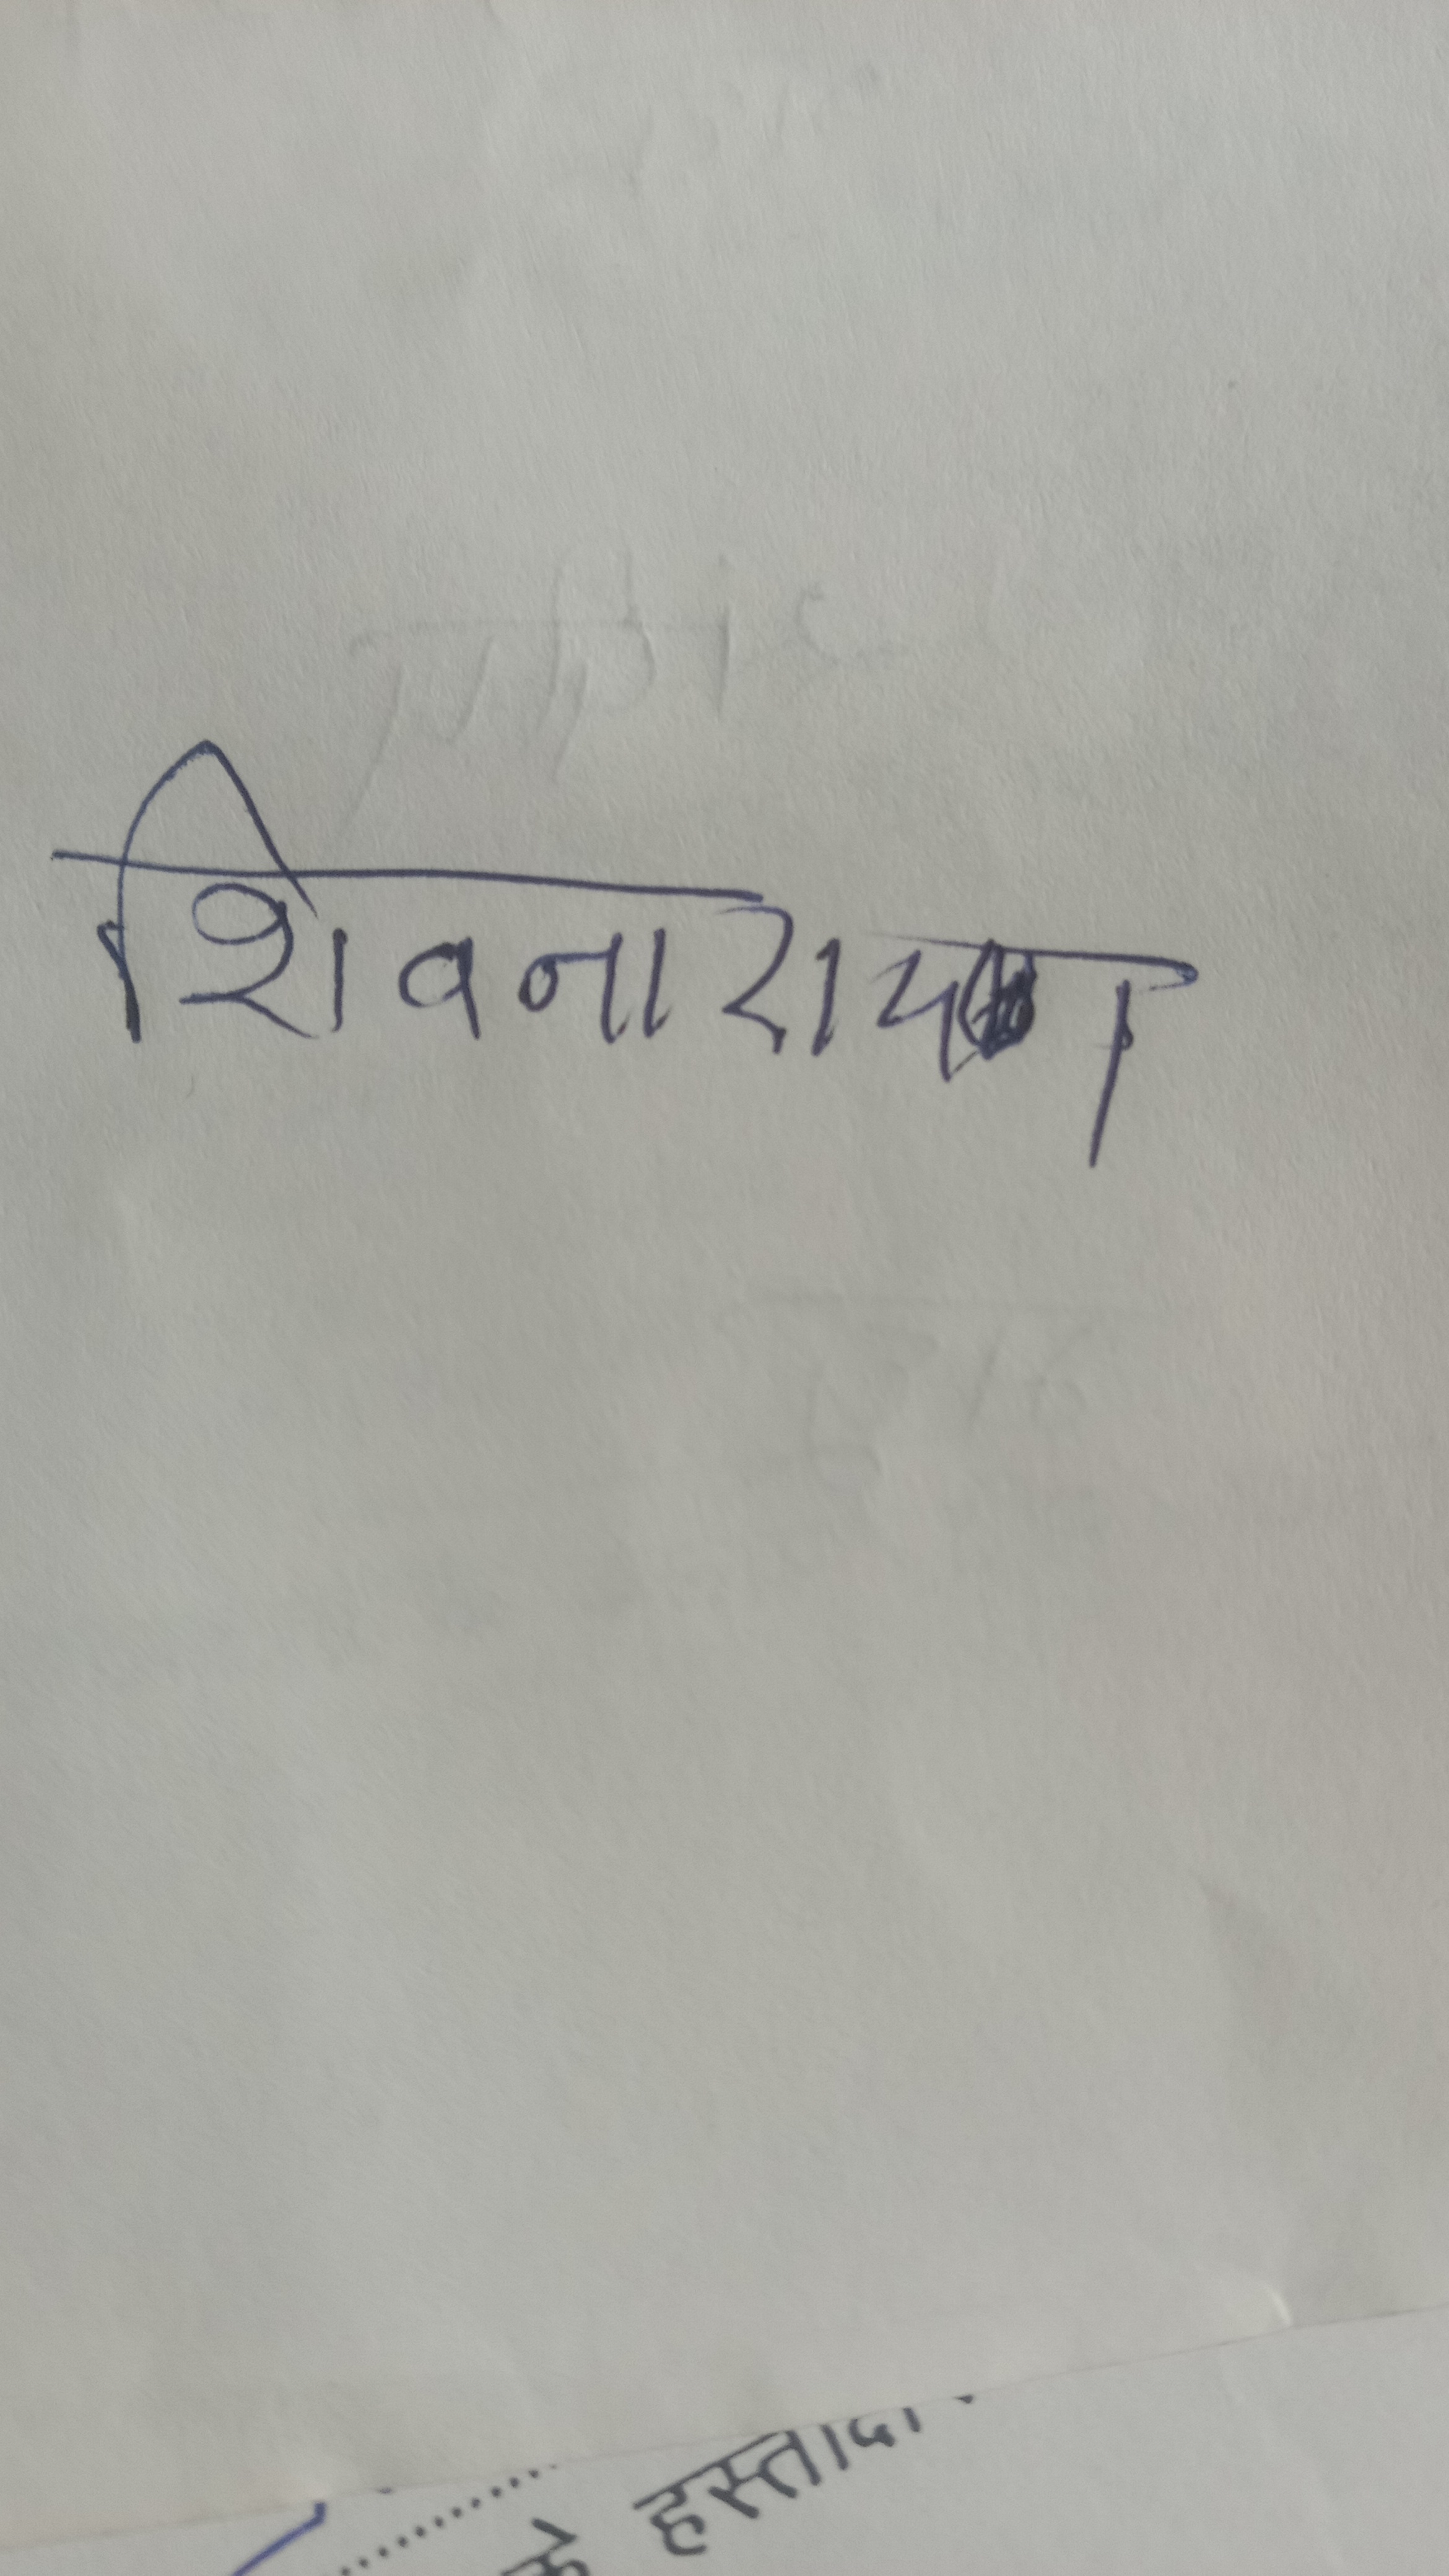 शिवनारायण
के हस्ताक्षर